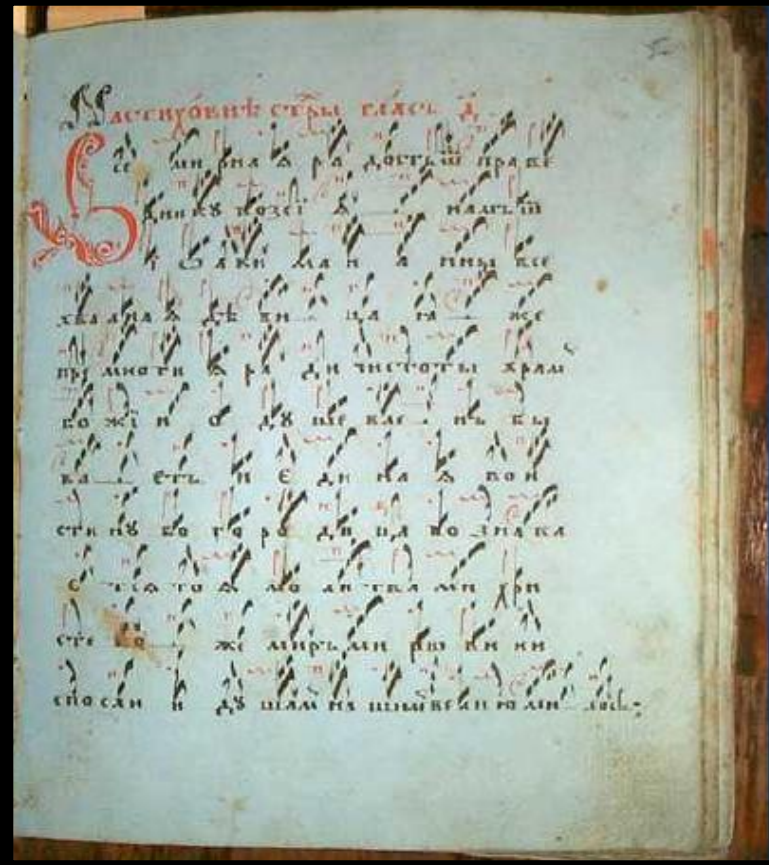 На стихо́внѣ стр҃ы гла́съ д҃
Все ми рна ѧ ра дость ѿ пра ве
дникꙋ возсї ѧ намъ ѿ
ї ѡ аки ма и а нны все
хва лна ѧ дѣ ви ца ꙗ же
пре многи ѧ ра ди чистоты храм
бо жїи ѡ дꙋ ше вле нъ бы
ва етъ и є ди на ѧ вои
стинꙋ бо го ро ди ца по зна ва
є тсѧ тоѧ мо литва ми хри
сте бо же миръ ми рꙋ ни
спосли и дꙋ шамъ на шимъ велию ми лость